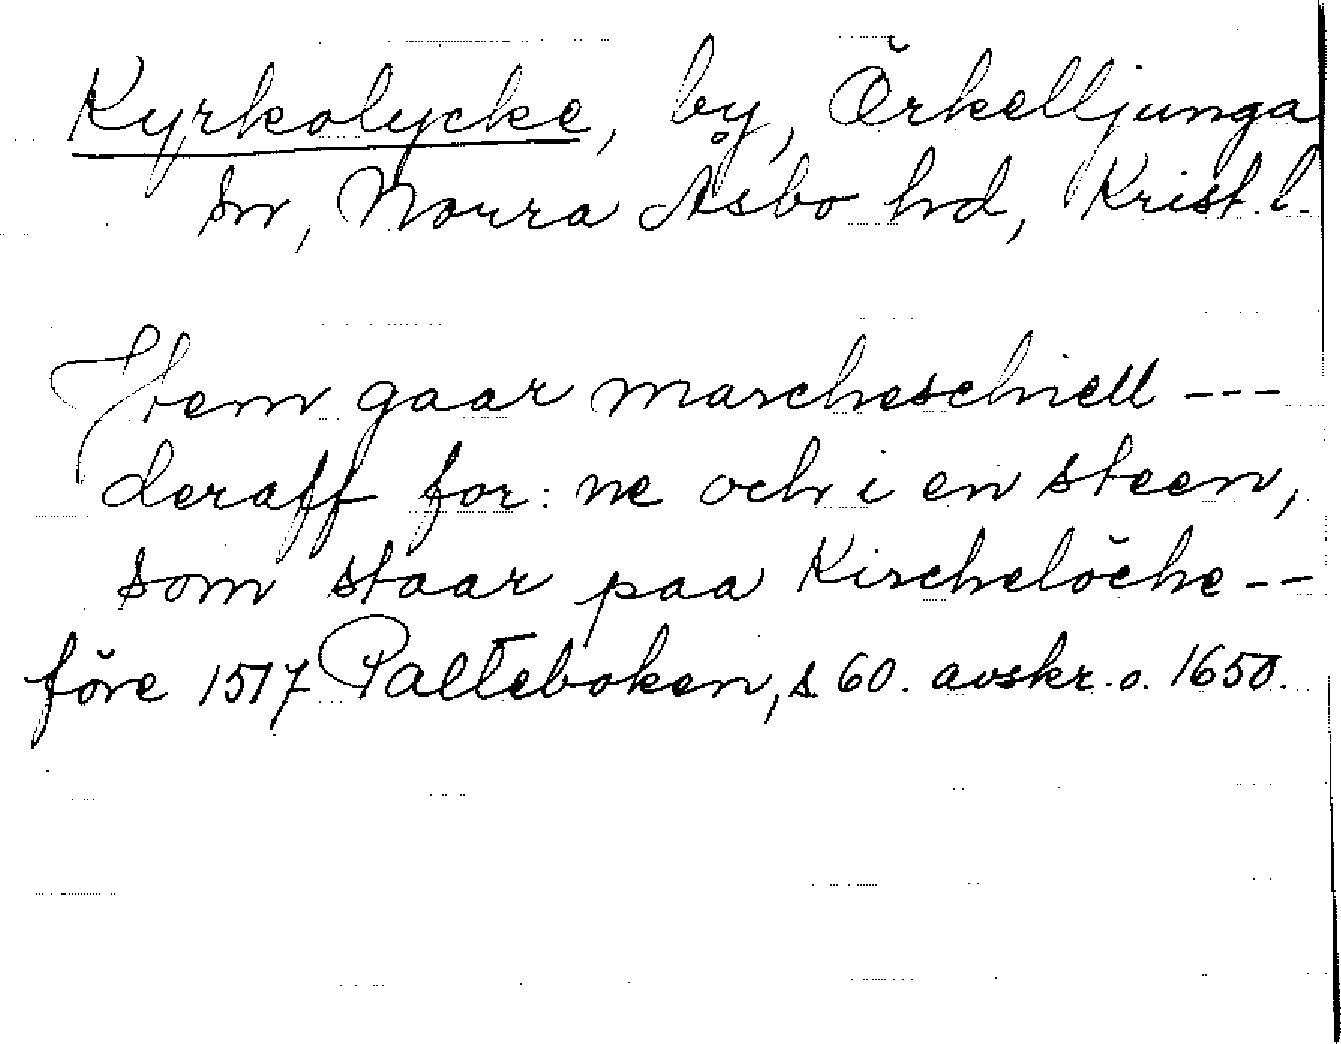 Kyrkolycke, by, Örkelljunga
sn, Norra Åsbo hd, Krist. l.
Item gaar marcheschiell ---
deraff for: ne och i en steen,
som staar paa Kirchelöche --
före 1517 Palteboken, s 60. avskr. o. 1650.